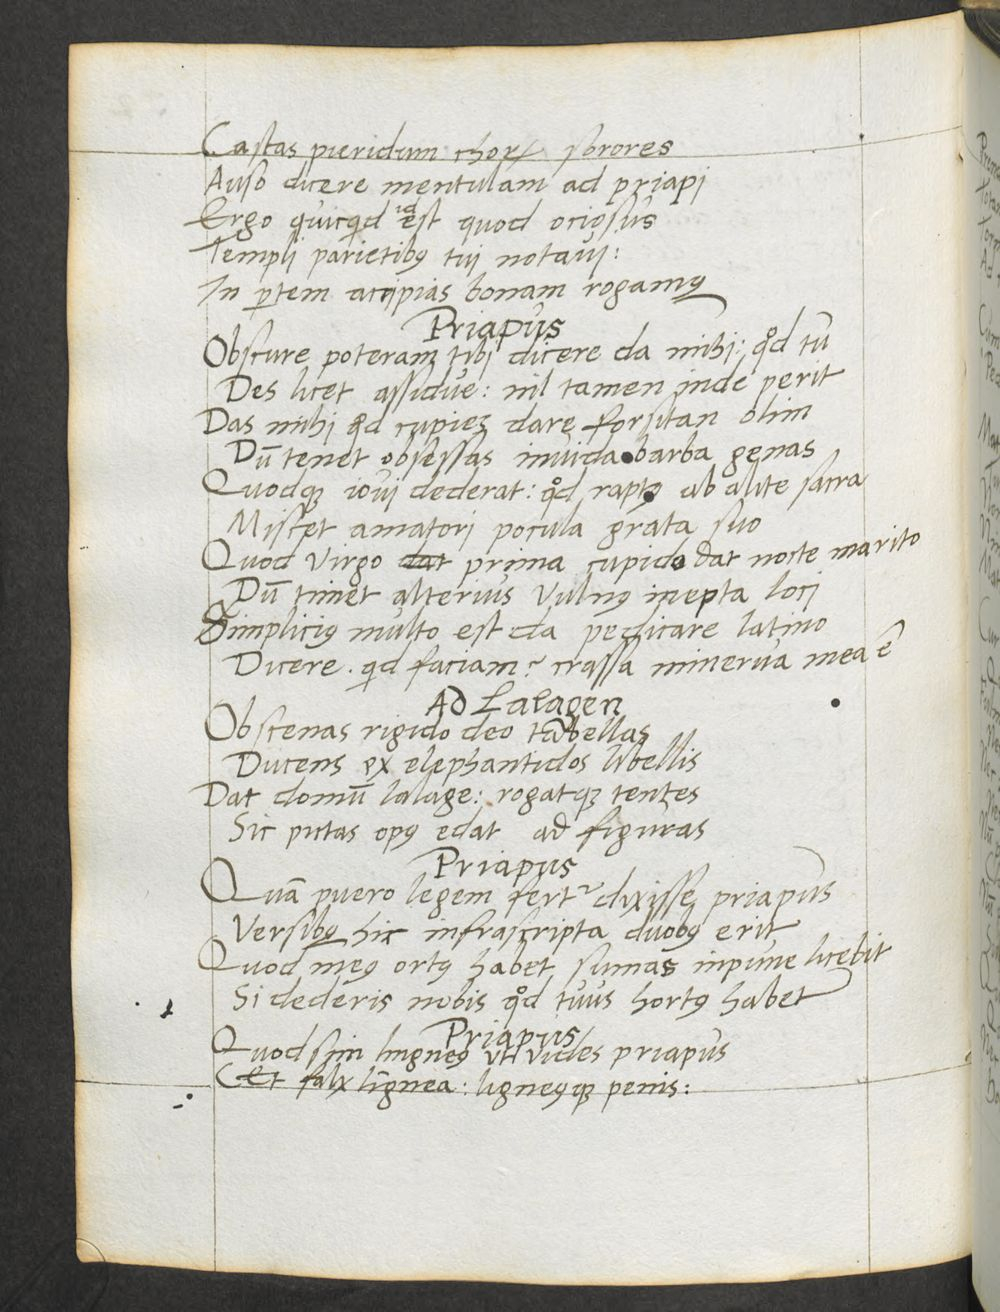 Castas pieridum chorꝝ sorores
Auso dicere mentulam ad priapi
Ergo quicqd id est quod ociosus
Templi parietibꝰ tui notaui:
In ꝑtem accipias bonam rogamꝰ
Priapus
Obscure poteram tibi dicere da mihi: qd tu᷒
Des licet assidue: nil tamen inde perit
Das mihi qd cupiez dare forsitan olim
Dū tenet obsessas inuida barba genas
Quodqꝫ ioui dederat: qd raptꝰ ab alite sacra
Miscet amatori pocula grata suo
Quod Virgo dat prima cupido dat nocte marito
Dū timet alterius Vulnꝰ inepta loci
Simpliciꝰ multo est da pedicare latino
Dicere. qd faciam? crassa minerua mea ē
Ad Lalagen
Obscenas rigido deo tabellas
Ducens ex elephantidos libellis
Dat domū lalage: rogatqꝫ tentes
Sic pictas opꝰ edat ad figuras
Priapus
Quā puero legem fert᷑ dixisse priapus
Versibꝰ hic infrascripta duobꝰ erit
Quod meꝰ ortꝰ habet sumas inpune licebit
Si dederis nobis qd tuus hortꝰ habet
Priapus
Quod sim lingneꝰ uti uides priapus
Et falx lignea: ligneꝰqꝫ penis: